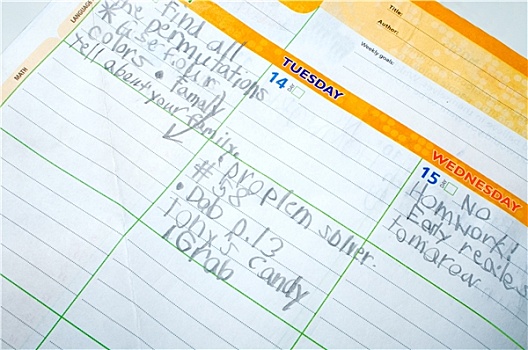 LANGUAGE
MATH
Title:
Author:
Weekly goals:
Find all
the permutations
* use four
colors • Family
tell about your family.
TUESDAY
14
• problem solver.
# 58
• Dab p.13
Tony's Candy
Grab
WEDNESDAY
15
No
Homwork!
Early realese
tomarow